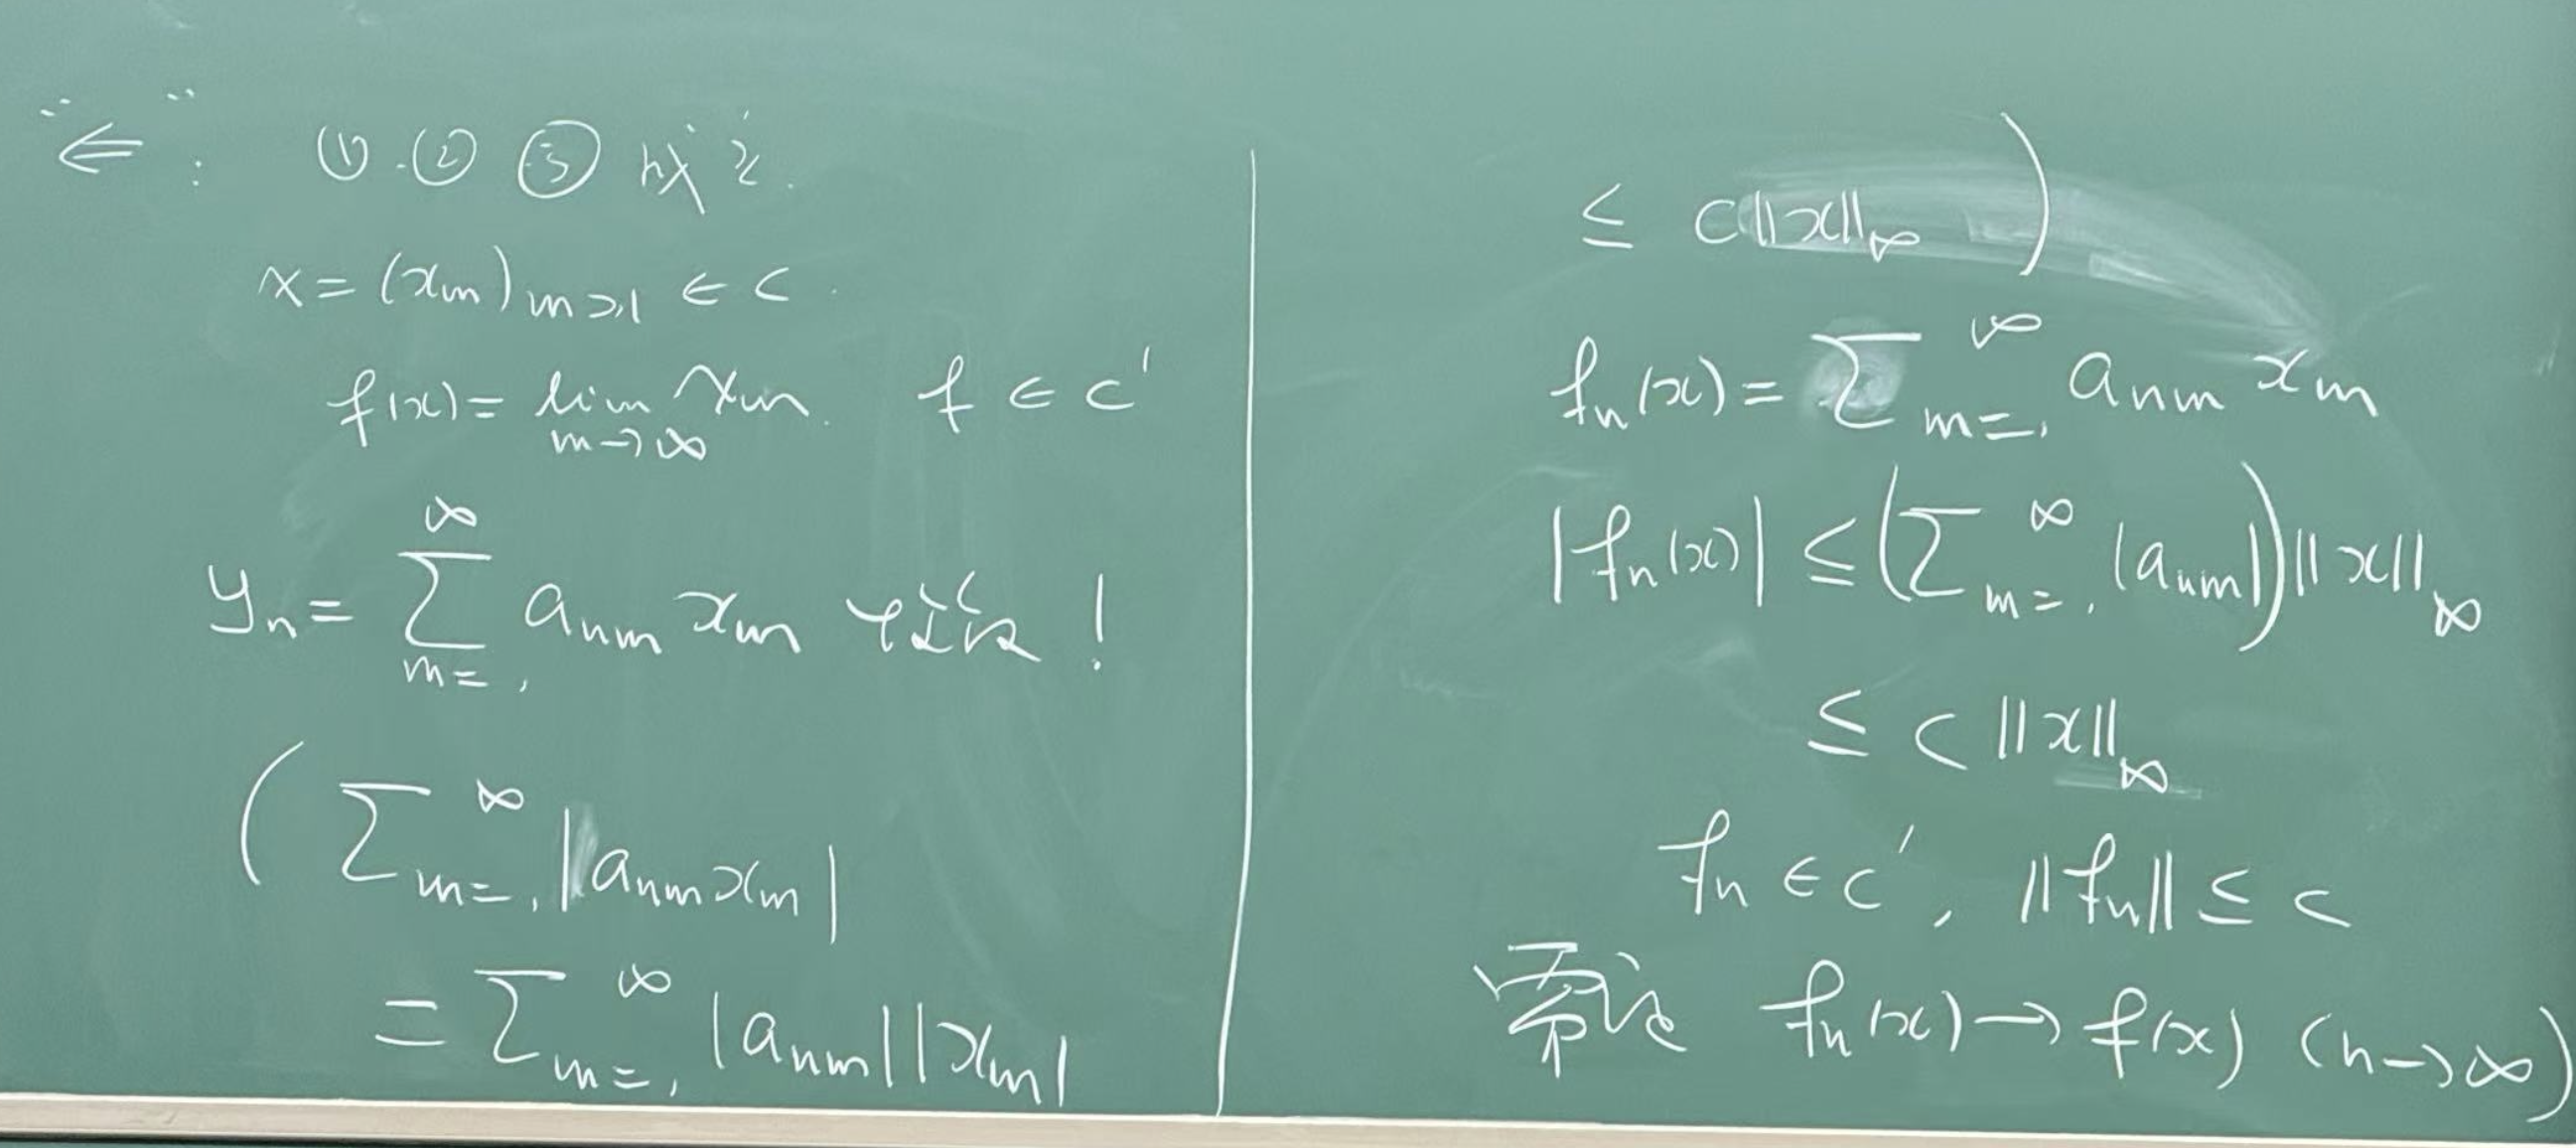 "⇐": ① ② ③ 成立.
x = (x_m)_{m≥1} ∈ c.
f(x) = lim_{m→∞} x_m. f ∈ c'
y_n = ∑_{m=1}^{∞} a_{nm} x_m 收敛!
( ∑_{m=1}^{∞} |a_{nm} x_m|
= ∑_{m=1}^{∞} |a_{nm}| |x_m|
≤ C‖x‖_∞ )
f_n(x) = ∑_{m=1}^{∞} a_{nm} x_m
|f_n(x)| ≤ ( ∑_{m=1}^{∞} |a_{nm}| ) ‖x‖_∞
≤ C ‖x‖_∞
f_n ∈ c', ‖f_n‖ ≤ C
需证 f_n(x) → f(x) (n→∞)